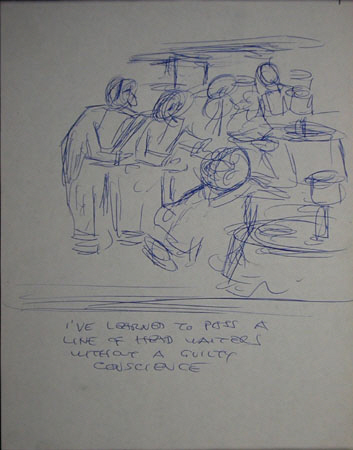 I'VE LEARNED TO PASS A
LINE OF HEAD WAITERS
WITHOUT A GUILTY
CONSCIENCE